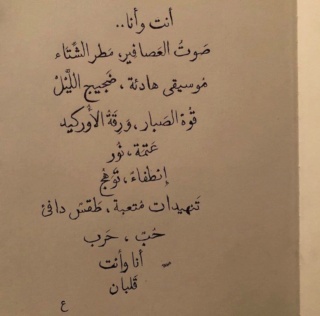 أنت وأنا..
صَوتُ العَصافير، مَطر الشتَاء
مُوسيقى هادئة، ضَجيج اللَّيْل
قوّة الصَبار، وَرِقَةُ الأُوركيد
عَتمَة، نُور
إنطفاءَ، تَوَهُج
تَنهيدات مُتعبة، طَقسْ دافئ
حَبّ، حَرب
أنا وأنت
قَلبان
ع